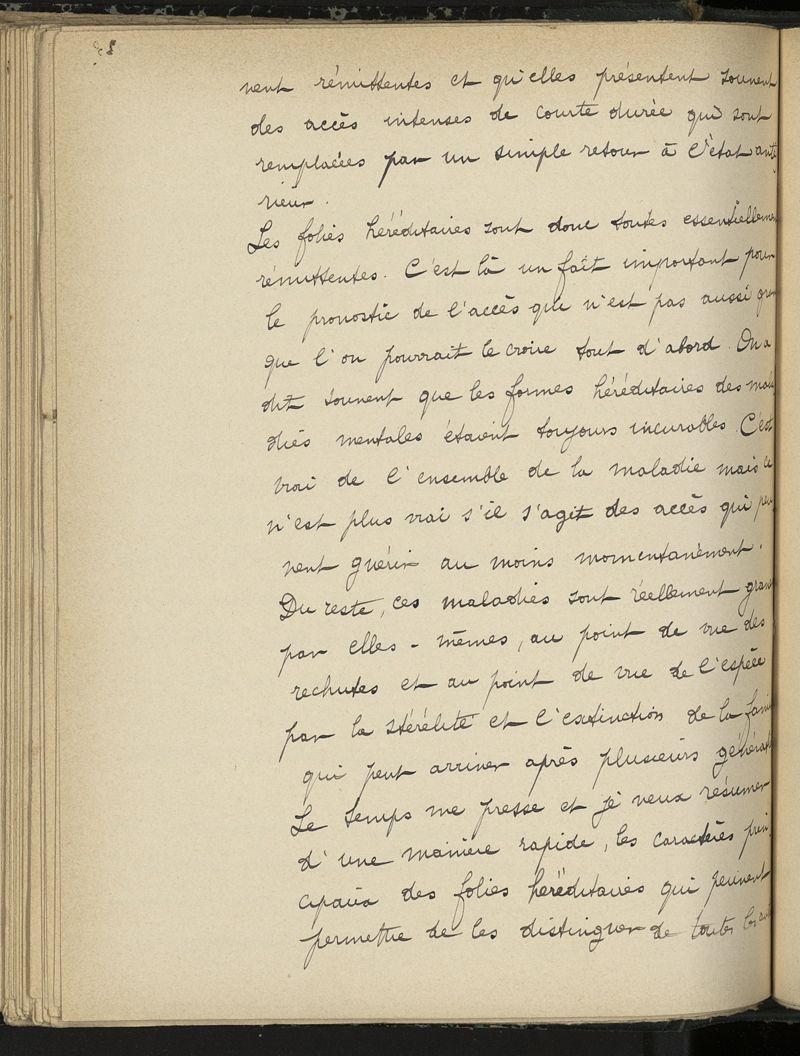 vent rémittentes et qu'elles présentent souvent
des accès intenses de courte durée qui sont
remplacées par un simple retour à l'état anté
rieur.
Les folies héréditaires sont donc toutes essentiellemen
rémittentes. C'est là un fait important pour
le pronostic de l'accès qui n'est pas aussi grav
que l'on pourrait le croire tout d'abord. On a
dit souvent que les formes héréditaires des mala
dies mentales étaient toujours incurables. C'est
vrai de l'ensemble de la maladie mais ce
n'est plus vrai s'il s'agit des accès qui peu
vent guérir au moins momentanément.
Du reste, ces maladies sont réellement graves
par elles-mêmes, au point de vue des
rechutes et au point de vue de l'espèce
par la stérélité et l'extinction de la fami
qui peut arriver après plusieurs générati
Le temps me presse et je veux résumer
d'une manière rapide, les caractères prin
cipaux des folies héréditaires qui peuvent
permettre de les distinguer de toutes les aut